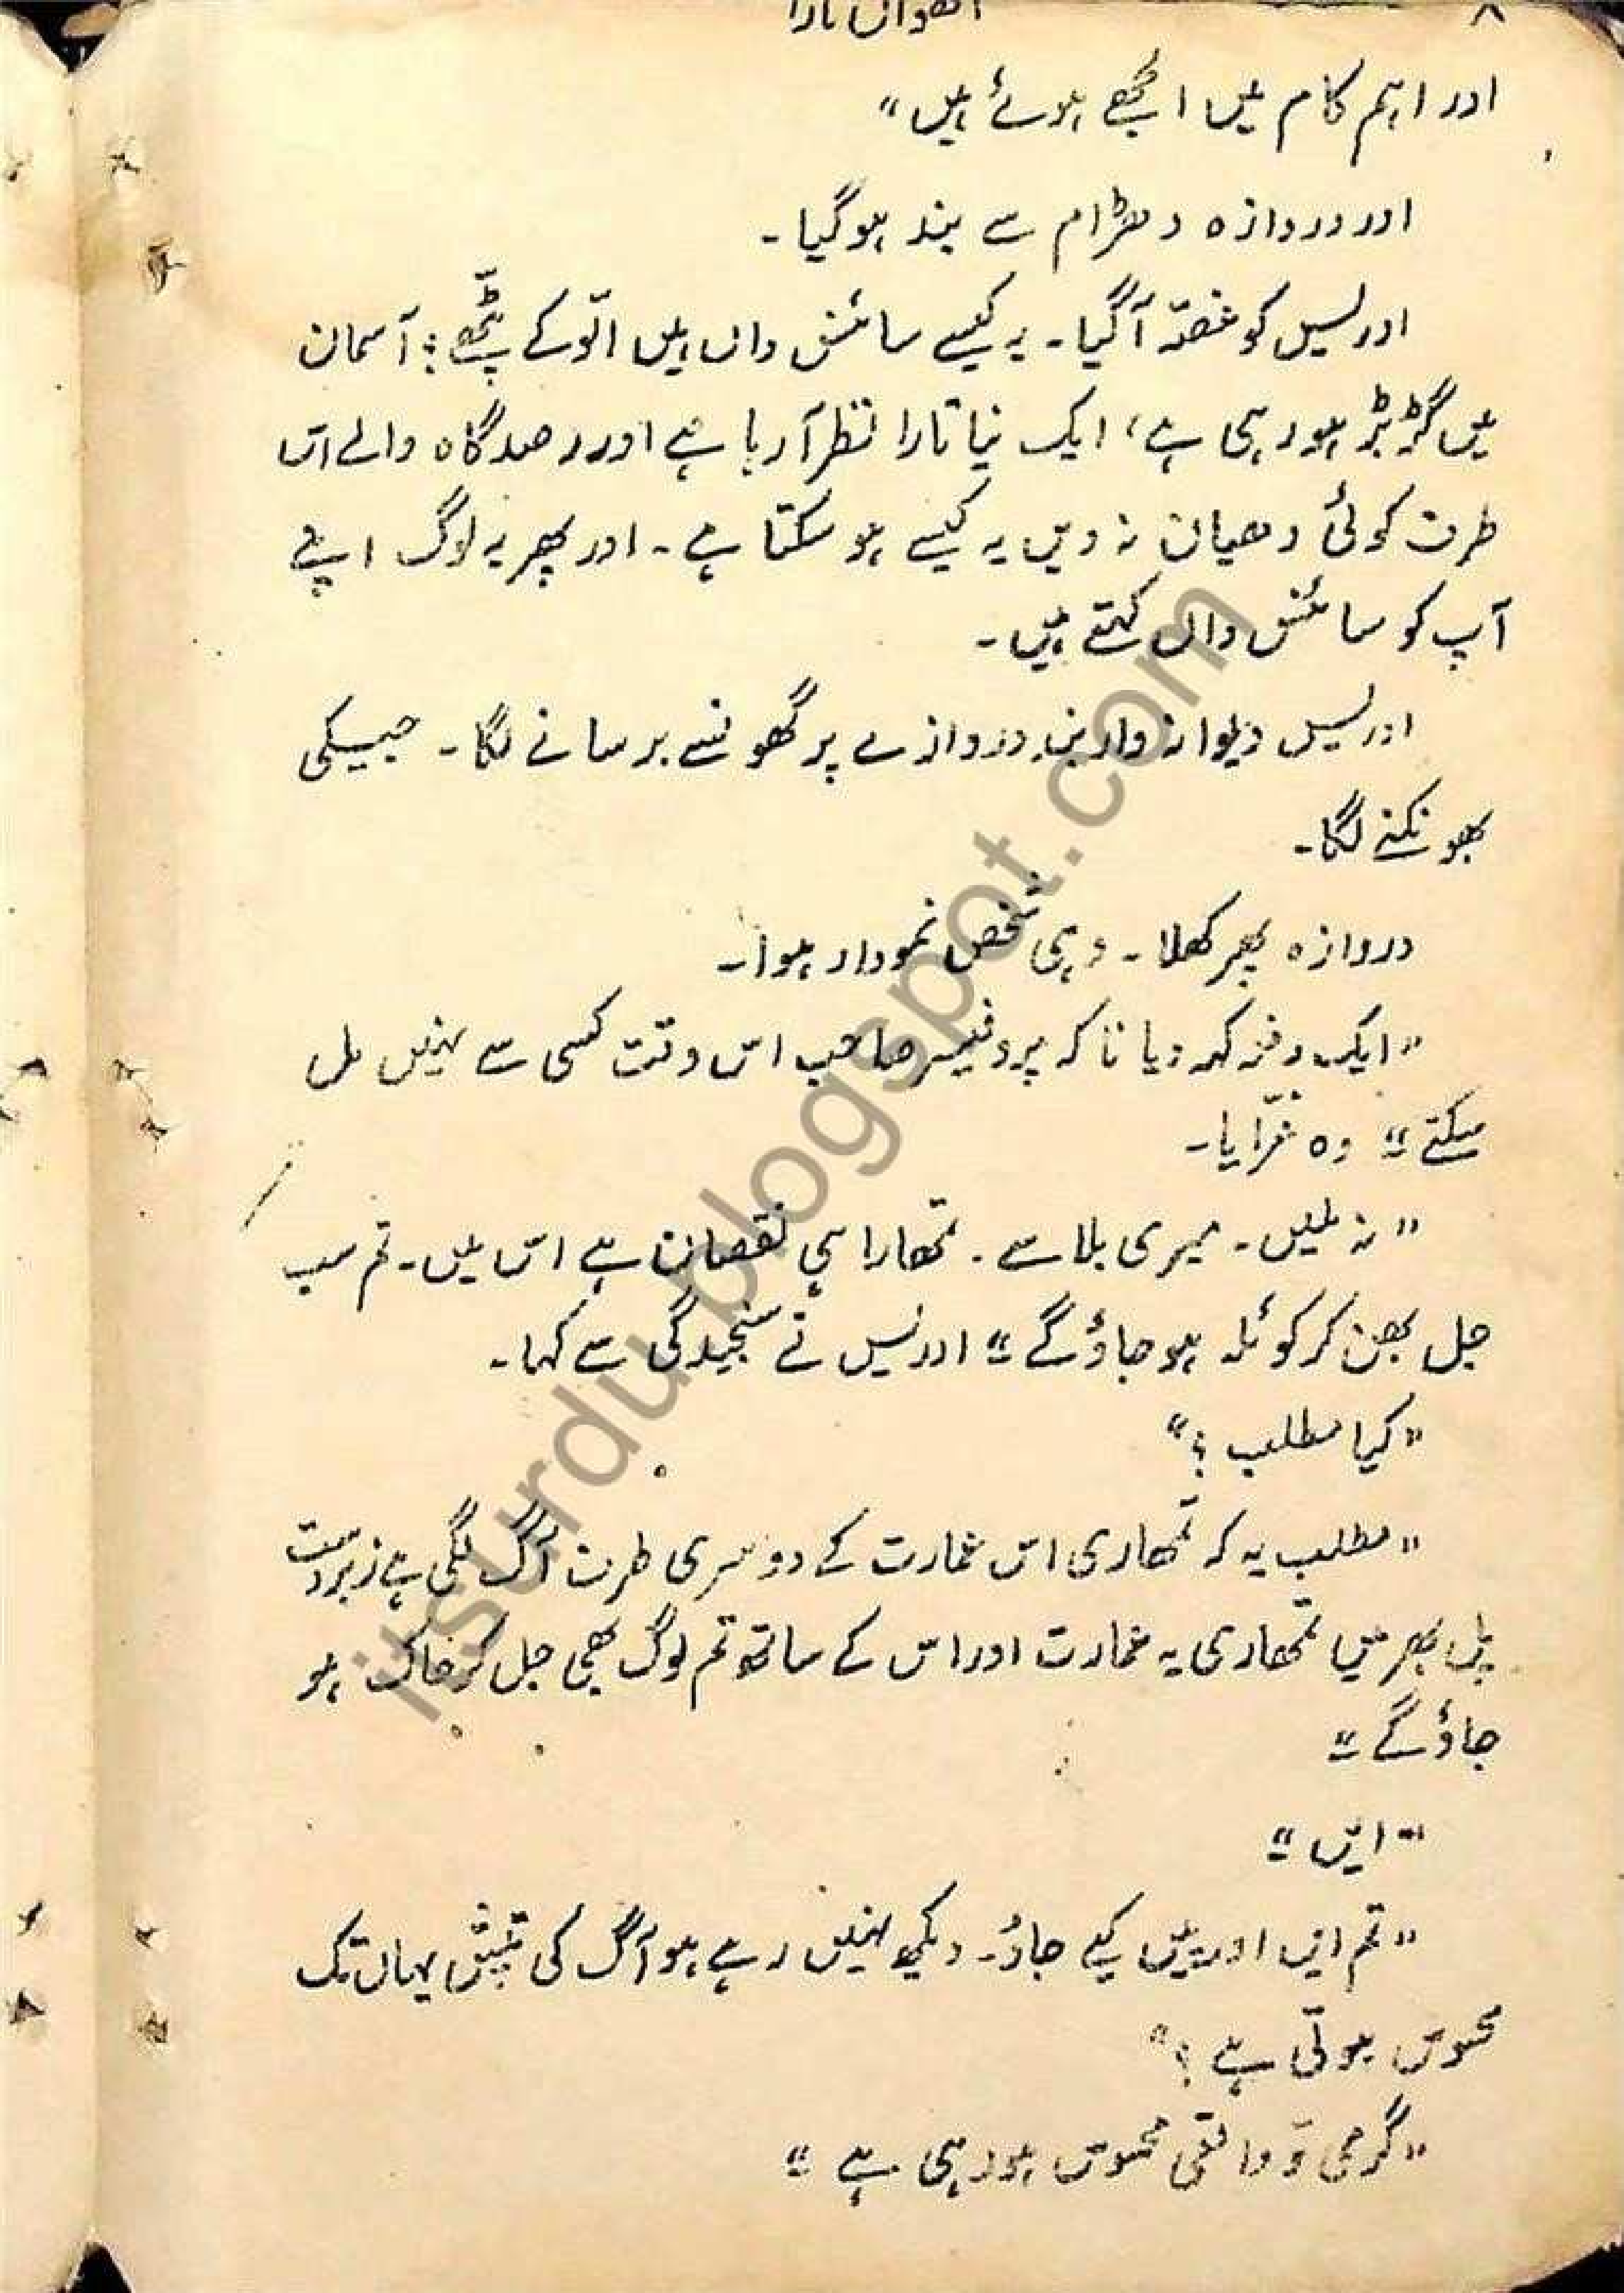 ۸
اور اہم کام میں الجھے ہوئے ہیں"
اور دروازہ دھڑام سے بند ہوگیا۔
ادریس کو غصّہ آگیا۔ یہ کیسے سائنس داں ہیں الّو کے پٹّھے؟ آسمان
میں گڑبڑ ہو رہی ہے، ایک نیا تارا نظر آ رہا ہے اور رصدگاہ والے اس
طرف کوئی دھیان نہ دیں یہ کیسے ہو سکتا ہے۔ اور پھر یہ لوگ اپنے
آپ کو سائنس داں کہتے ہیں۔
ادریس دیوانہ وار بند دروازے پر گھونسے برسانے لگا۔ جیسکی
بھونکنے لگا۔
دروازہ پھر کھلا۔ وہی شخص نمودار ہوا۔
"ایک دفعہ کہہ دیا نا کہ پروفیسر صاحب اس وقت کسی سے نہیں مل
سکتے" وہ غرّایا۔
"نہ ملیں۔ میری بلا سے۔ تمھارا ہی نقصان ہے اس میں۔ تم سب
جل بھن کر کوئلہ ہو جاؤ گے" ادریس نے سنجیدگی سے کہا۔
"کیا مطلب؟"
"مطلب یہ کہ تمھاری اس عمارت کے دوسری طرف آگ لگی ہے زبردست
پل بھر میں تمھاری یہ عمارت اور اس کے ساتھ تم لوگ بھی جل کر خاک ہو
جاؤ گے"
"ایں"
"تم ایں اور بیں کیے جاؤ۔ دیکھو نہیں رہے ہو آگ کی تپش یہاں تک
محسوس ہوتی ہے؟"
"گرمی تو واقعی محسوس ہو رہی ہے"
itsurdu.blogspot.com